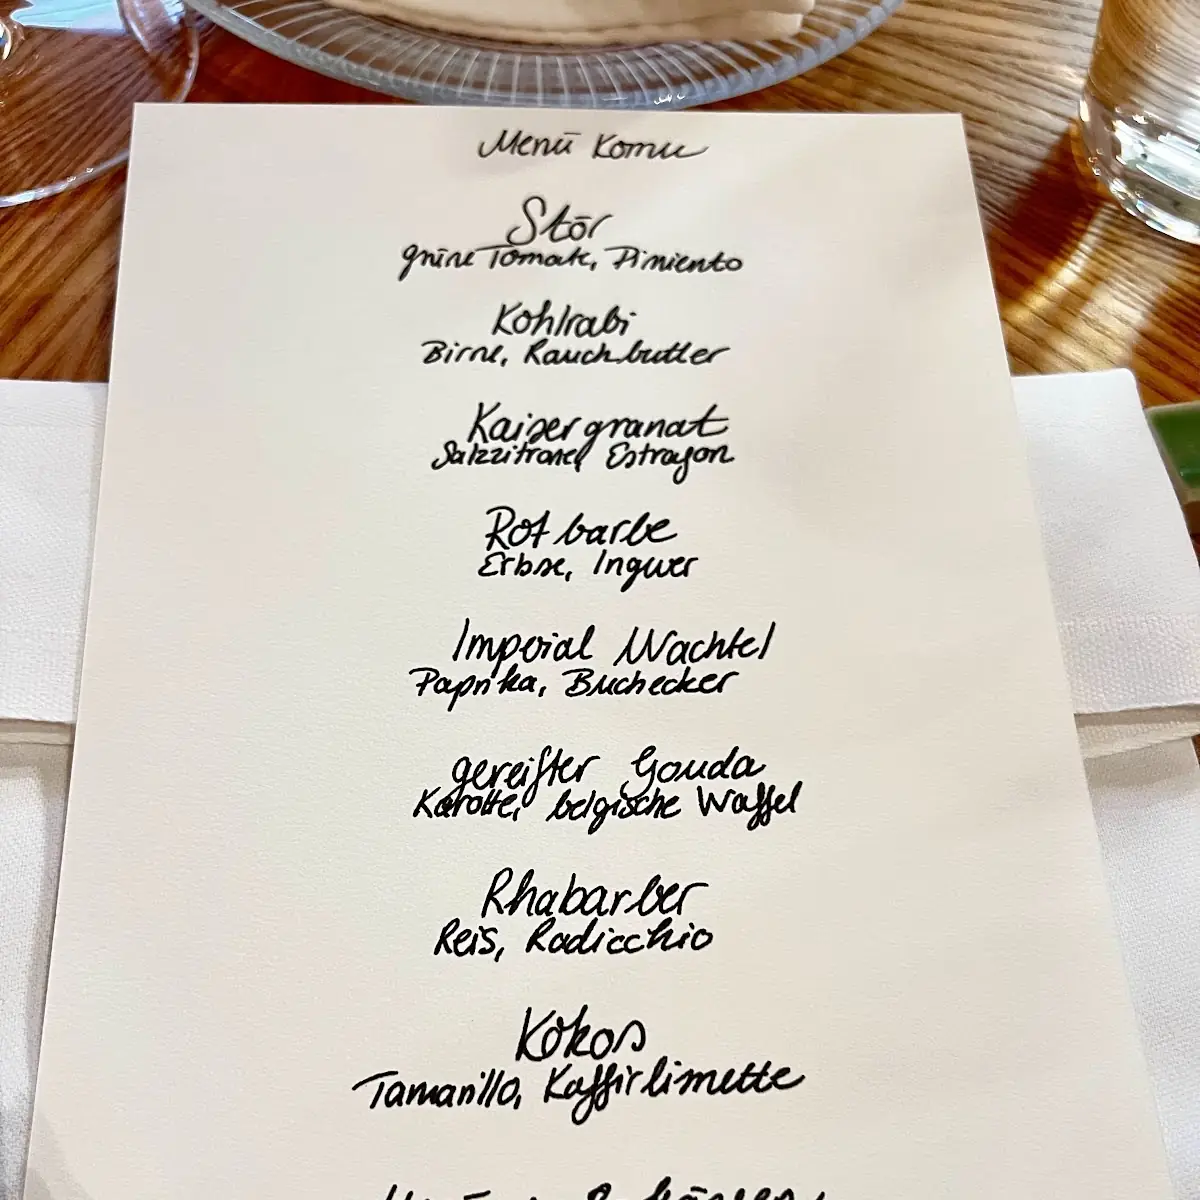 Menü Komu
Stör
grüne Tomate, Pimiento
Kohlrabi
Birne, Rauchbutter
Kaisergranat
Salzzitrone, Estragon
Rotbarbe
Erbse, Ingwer
Imperial Wachtel
Paprika, Buchecker
gereifter Gouda
Karotte, belgische Waffel
Rhabarber
Reis, Radicchio
Kokos
Tamarillo, Kaffirlimette